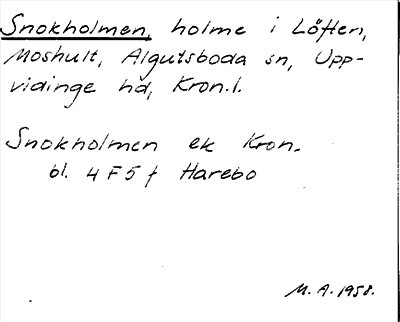 Snokholmen, holme i Löften,
Moshult, Algutsboda sn, Upp-
vidinge hd, Kron.l.
Snokholmen ek Kron.
bl. 4 F 5 f Harebo
M.A. 1958.